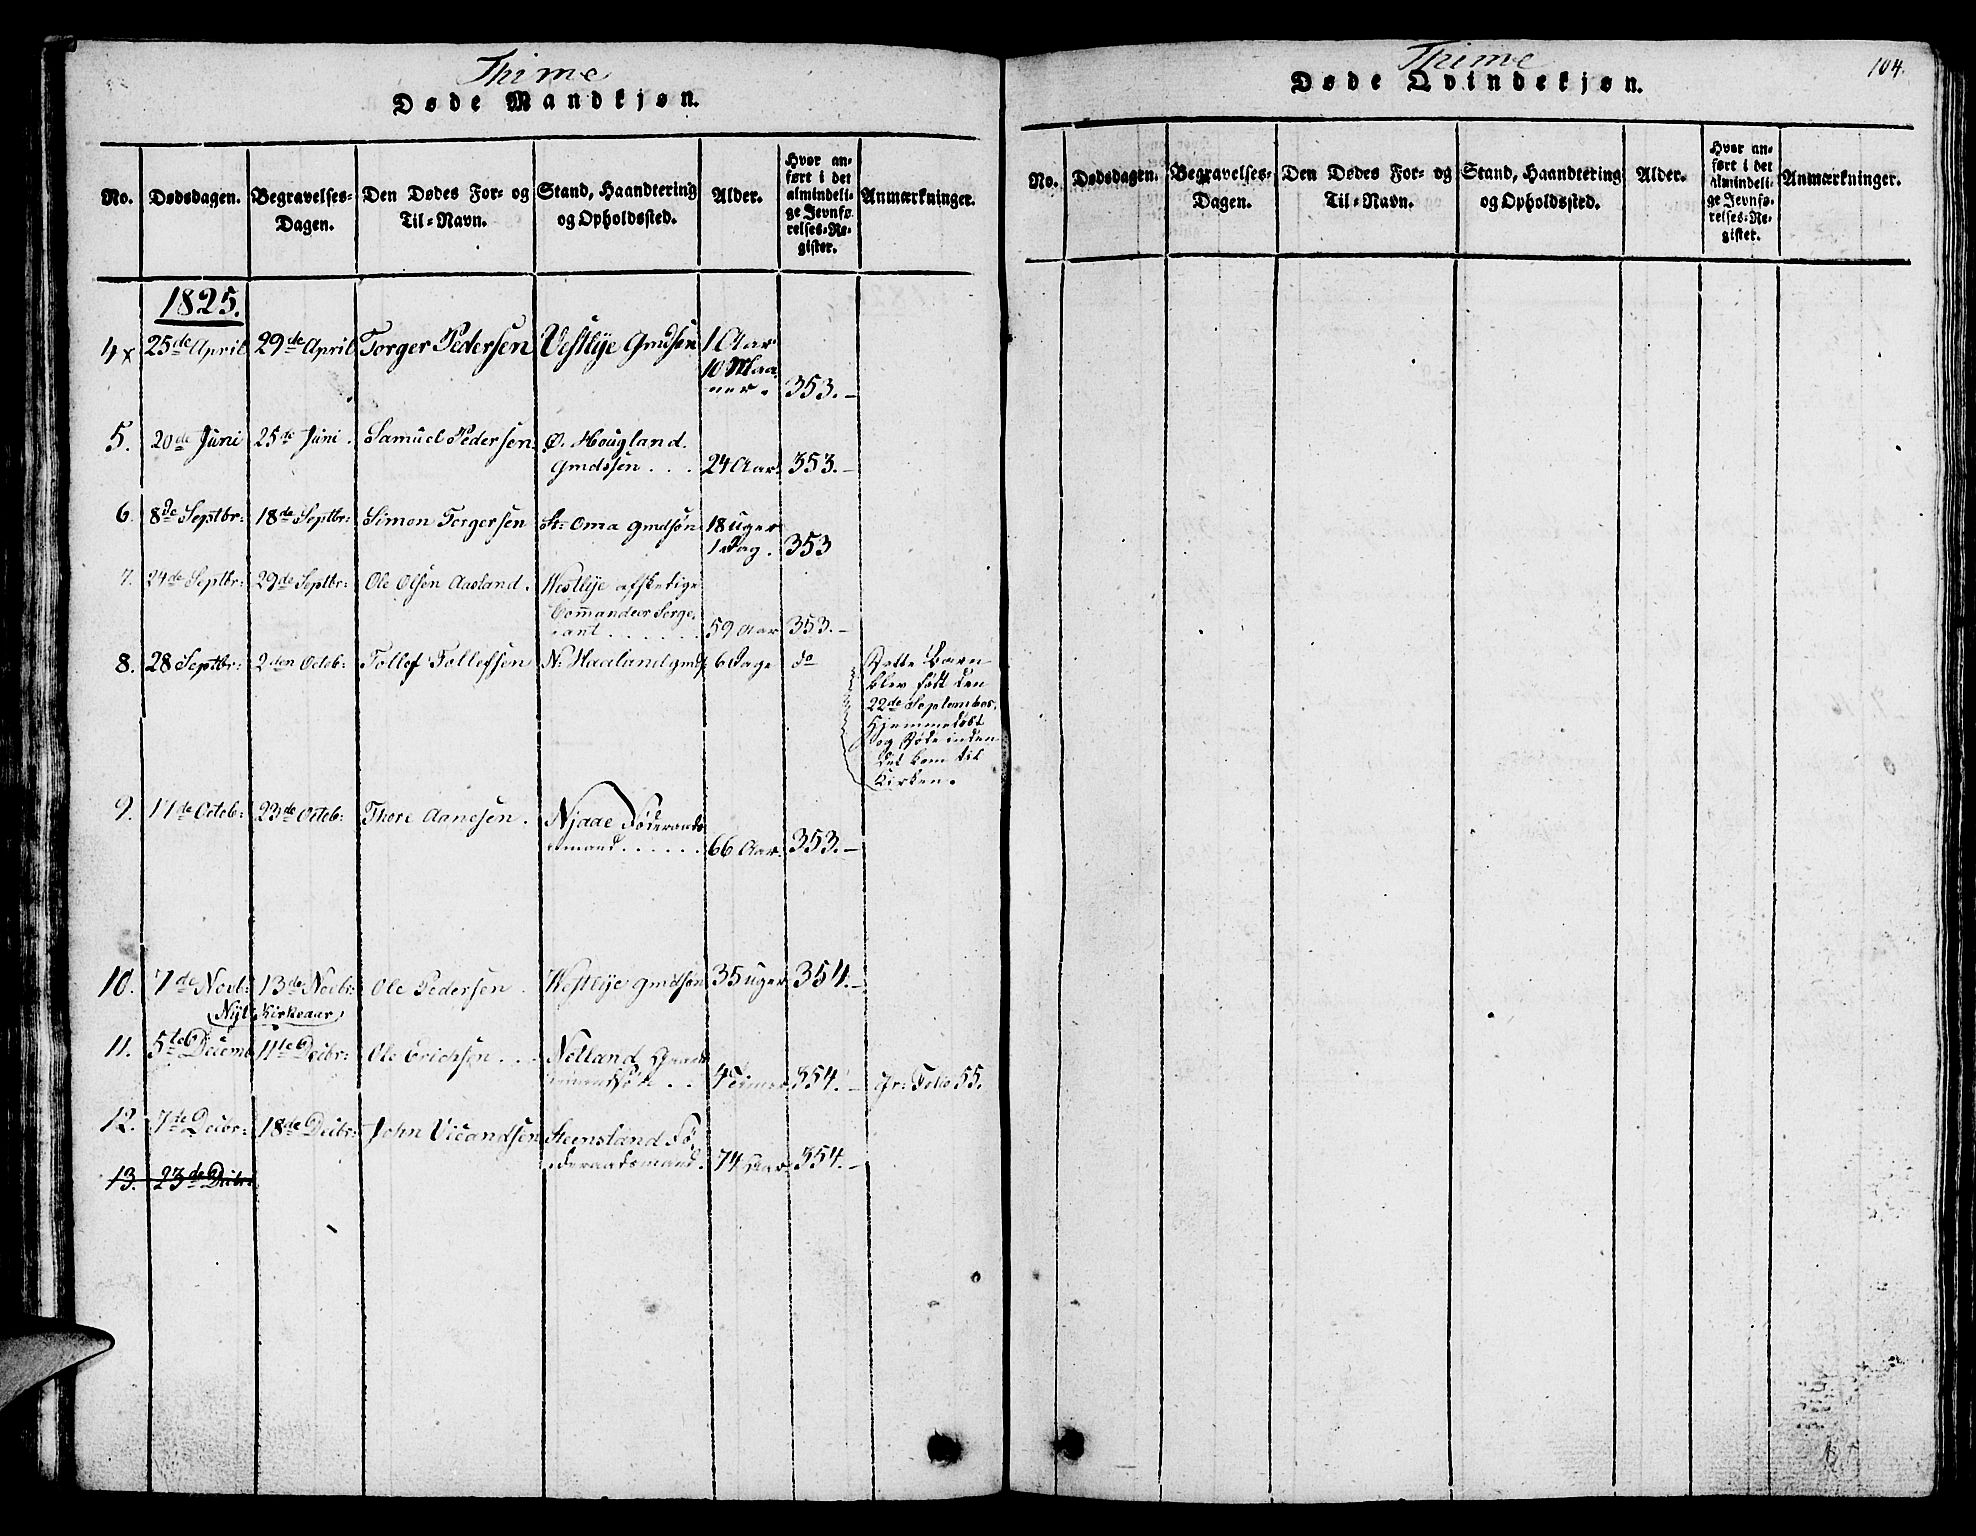 Thime
Døde Mandkjøn.
No.
Dødsdagen.
Begravelses-
Dagen.
Den Dødes For- og
Til-Navn.
Stand, Haandtering
og Opholdssted.
Alder.
Hvor an-
ført i det
almindeli-
ge Jevnfø-
relses-Re-
gister.
Anmærkninger.
1825.
4x 25de April 29de April Torger Pedersen Vestlye Gmdsøn 1 Aar
10 Maa
ner. 353.
5. 20de Juni 25de Juni. Samuel Pedersen Ø. Hougland.
Gmdssøn . . . 24 Aar 353.
6. 8de Septbr: 18de Septbr: Simon Torgersen St: Oma gmdsøn 18 uger
1 Dag. 353
7. 24de Septbr: 29de Septbr: Ole Olsen Aasland. Westlye afskedige
Commandeer Serge,
ant . . . . . . 59 Aar 353.
8. 28 Septbr: 2den Octob: Tollef Tollefsen N: Haaland gmds 6 Dage do
Dette Barn
blev født den
22de September.
Hjemmedøbt
og Døde inden
det kom til
Kirken.
9. 17de Octob: 23de Octob: Thore Aanesen. Njaae Føderaads
mand . . . . . . 66 Aar. 353.
10. 7de Novb: 13de Novbr: Ole Pedersen. Westlye gmdsøn 35 uger 354.
(Nyt Kirkeaar)
11. 5te Decemb 11te Decbr: Ole Erichsen . . Netland
4 Timer 354. Follo 55.
12. 7de Decbr: 18de Decbr: John Vicandsen Steensland Fø,
deraadsmand. 74 Aar 354.
13. 23de Decbr:
Thime
104.
Døde Qvindekjøn.
No.
Dødsdagen.
Begravelses-
Dagen.
Den Dødes For- og
Til-Navn.
Stand, Haandtering
og Opholdssted.
Alder.
Hvor an-
ført i det
almindeli-
ge Jevnfø-
relses-Re-
gister.
Anmærkninger.